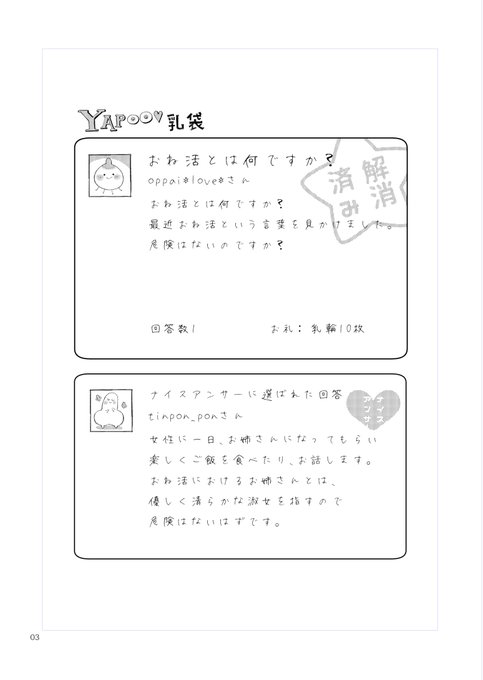 YAPOO♥乳袋
おね活とは何ですか?
oppai*love*さん
解消済み
おね活とは何ですか?
最近おね活という言葉を見かけました。
危険はないのですか?
回答数1
お礼：乳輪10枚
ナイスアンサーに選ばれた回答
ナイスアンサー
tinpon_ponさん
女性に一日、お姉さんになってもらい
楽しくご飯を食べたり、お話します。
おね活におけるお姉さんとは、
優しく清らかな淑女を指すので
危険はないはずです。
03